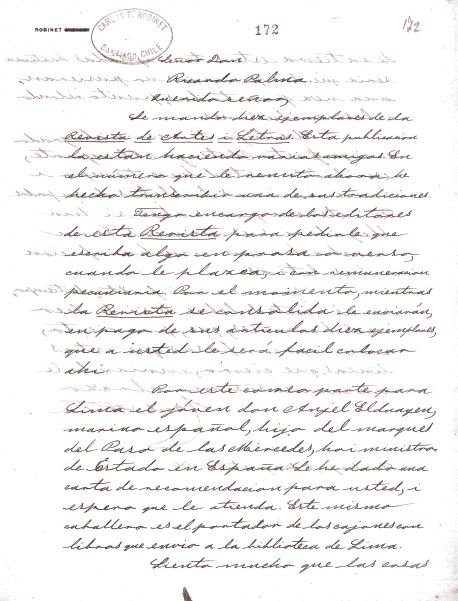 ROBINET
CARLOS T. ROBINET
SANTIAGO, CHILE
172
172
Señor Don
Ricardo Palma.
Querido señor,
Le mando diez ejemplares de la
Revista de Artes i Letras. Esta publicacion
la estan haciendo varios amigos. En
el número que le remito ahora he
hecho transcribir una de sus tradiciones.
Tengo encargo de los editores
de esta Revista para pedirle que
escriba algo en prosa o verso,
cuando le plazca, i con remuneracion
pecuniaria. Por el momento, mientras
la Revista se consolida le enviarán,
en pago de sus articulos diez ejemplares,
que a usted le será facil colocar
aki.
Por este correo parte para
Lima el jóven don Anjel Elduayen,
marino español, hijo del marques
del Pazo de las Mercedes, hoi ministro
de Estado en España. Le he dado una
carta de recomendacion para usted, i
espero que le atienda. Este mismo
caballero es el portador de los cajones con
libros que envio a la biblioteca de Lima.
Siento mucho que las cosas